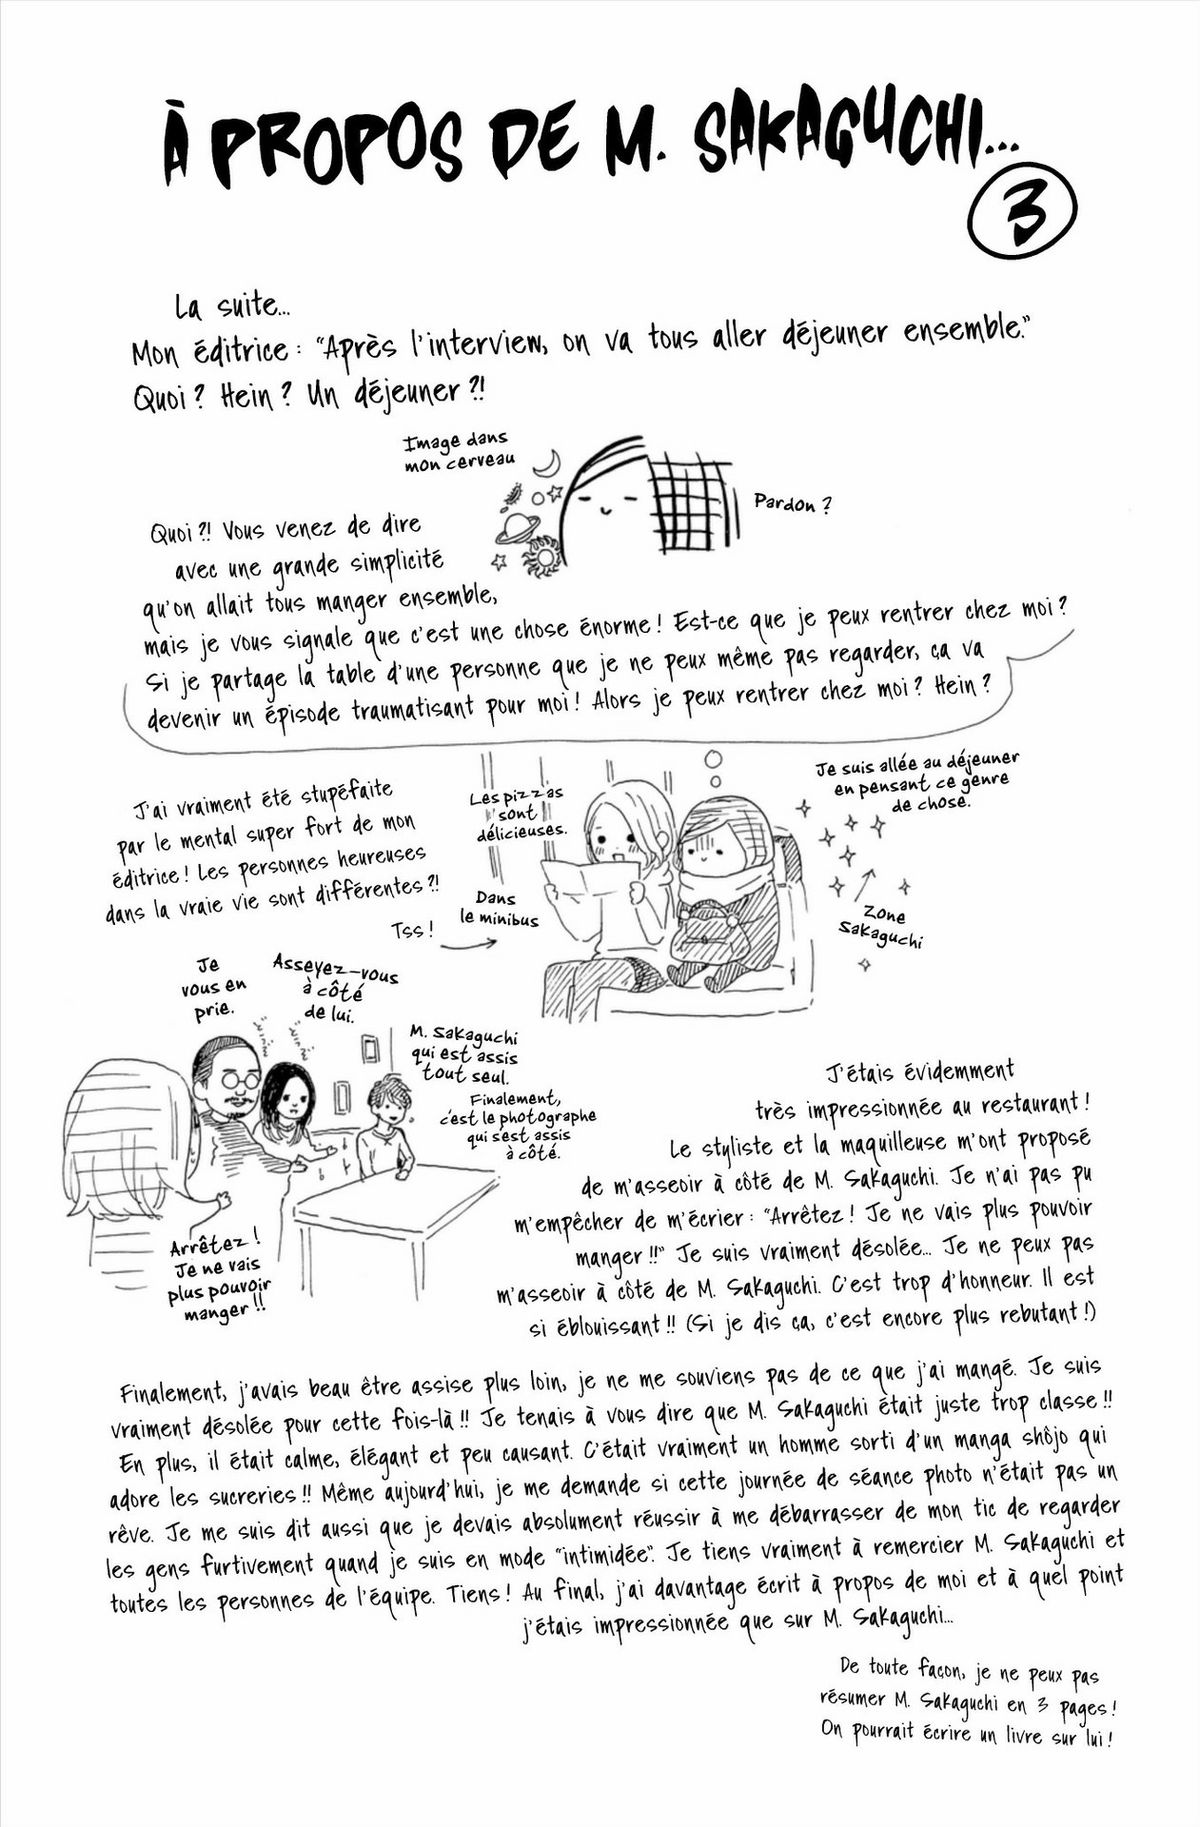 À PROPOS DE M. SAKAGUCHI...
3
La suite...
Mon éditrice : "Après l'interview, on va tous aller déjeuner ensemble."
Quoi ? Hein ? Un déjeuner ?!
Image dans
mon cerveau
Pardon ?
Quoi ?! Vous venez de dire
avec une grande simplicité
qu'on allait tous manger ensemble,
mais je vous signale que c'est une chose énorme ! Est-ce que je peux rentrer chez moi ?
Si je partage la table d'une personne que je ne peux même pas regarder, ça va
devenir un épisode traumatisant pour moi ! Alors je peux rentrer chez moi ? Hein ?
J'ai vraiment été stupéfaite
par le mental super fort de mon
éditrice ! Les personnes heureuses
dans la vraie vie sont différentes ?!
Tss !
Les pizzas
sont
délicieuses.
Dans
le minibus
Je suis allée au déjeuner
en pensant ce genre
de chose.
Zone
Sakaguchi
Je
vous en
prie.
Asseyez-vous
à côté
de lui.
M. Sakaguchi
qui est assis
tout seul.
Finalement,
c'est le photographe
qui s'est assis
à côté.
Arrêtez !
Je ne vais
plus pouvoir
manger !!
J'étais évidemment
très impressionnée au restaurant !
Le styliste et la maquilleuse m'ont proposé
de m'asseoir à côté de M. Sakaguchi. Je n'ai pas pu
m'empêcher de m'écrier : "Arrêtez ! Je ne vais plus pouvoir
manger !!" Je suis vraiment désolée... Je ne peux pas
m'asseoir à côté de M. Sakaguchi. C'est trop d'honneur. Il est
si éblouissant !! (Si je dis ça, c'est encore plus rebutant !)
Finalement, j'avais beau être assise plus loin, je ne me souviens pas de ce que j'ai mangé. Je suis
vraiment désolée pour cette fois-là !! Je tenais à vous dire que M. Sakaguchi était juste trop classe !!
En plus, il était calme, élégant et peu causant. C'était vraiment un homme sorti d'un manga shôjo qui
adore les sucreries !! Même aujourd'hui, je me demande si cette journée de séance photo n'était pas un
rêve. Je me suis dit aussi que je devais absolument réussir à me débarrasser de mon tic de regarder
les gens furtivement quand je suis en mode "intimidée". Je tiens vraiment à remercier M. Sakaguchi et
toutes les personnes de l'équipe. Tiens ! Au final, j'ai davantage écrit à propos de moi et à quel point
j'étais impressionnée que sur M. Sakaguchi...
De toute façon, je ne peux pas
résumer M. Sakaguchi en 3 pages !
On pourrait écrire un livre sur lui !